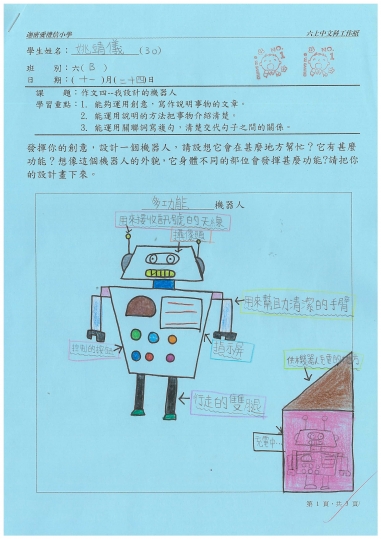 迦密愛禮信小學 六上中文科工作紙
學生姓名：姚靖儀 (30)
班 別：六( B )
日 期：(十一)月(二十四)日
課 題：作文四--我設計的機器人
學習重點：1. 能夠運用創意，寫作說明事物的文章。
2. 能夠運用說明的方法把事物介紹清楚。
3. 能夠運用關聯詞寫複句，清楚交代句子之間的關係。
發揮你的創意，設計一個機器人，請設想它會在甚麼地方幫忙？它有甚麼
功能？想像這個機器人的外貌，它身體不同的部位會發揮甚麼功能？請把你
的設計畫下來。
多功能 機器人
用來接收訊號的天線
用來幫助清潔的手臂
指示屏
行走的雙腿
充電中
第 1 頁，共 3 頁